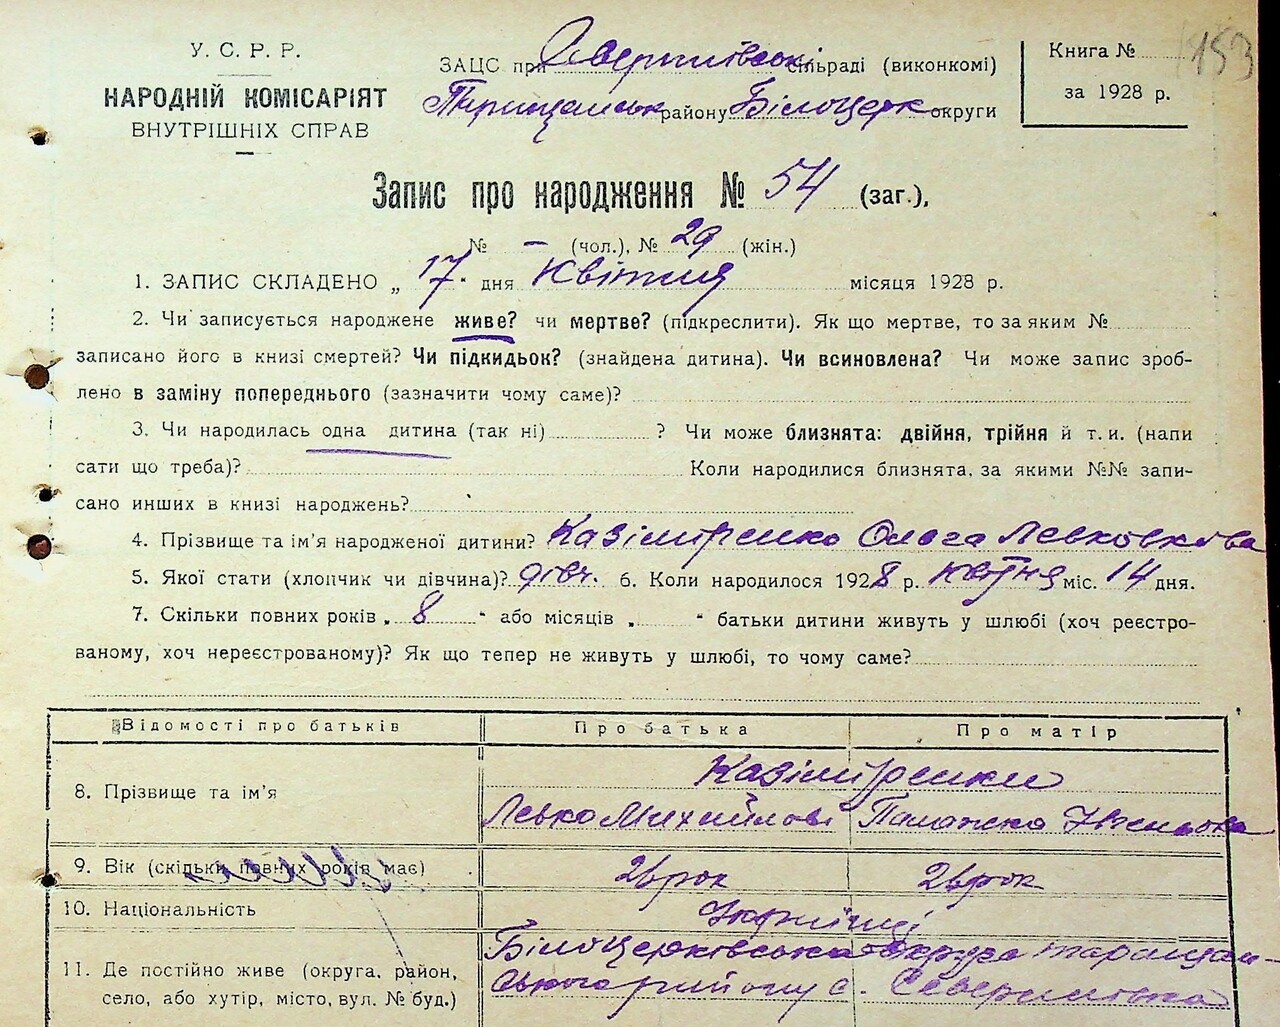 У. С. Р. Р.
НАРОДНІЙ КОМІСАРІЯТ
ВНУТРІШНІХ СПРАВ
ЗАЦС при сільраді (виконкомі)
району Білоцерк округи
Книга №
153
за 1928 р.
Запис про народження № 54 (заг.),
№ – (чол.), № 29 (жін.)
1. ЗАПИС СКЛАДЕНО „ 17 " дня Квітня місяця 1928 р.
2. Чи записується народжене живе? чи мертве? (підкреслити). Як що мертве, то за яким №
записано його в книзі смертей? Чи підкидьок? (знайдена дитина). Чи всиновлена? Чи може запис зроб-
лено в заміну попереднього (зазначити чому саме)?
3. Чи народилась одна дитина (так ні) ? Чи може близнята: двійня, трійня й т. и. (напи
сати що треба)? Коли народилися близнята, за якими №№ запи-
сано инших в книзі народжень?
4. Прізвище та ім'я народженої дитини? Казіміренко Ольга Левковкова
5. Якої стати (хлопчик чи дівчина)? дівч. 6. Коли народилося 1928 р. квітня міс. 14 дня.
7. Скільки повних років „ 8 " або місяців „ " батьки дитини живуть у шлюбі (хоч реєстро-
ваному, хоч нереєстрованому)? Як що тепер не живуть у шлюбі, то чому саме?
Відомості про батьків Про батька Про матір
8. Прізвище та ім'я Казіміренки
Левко Михайлові Палажка
9. Вік (скільки повних років має) 26 рок 26 рок
10. Національність Українці
11. Де постійно живе (округа, район,
село, або хутір, місто, вул. № буд.)
Білоцерківська округа таращан-
ського району с.